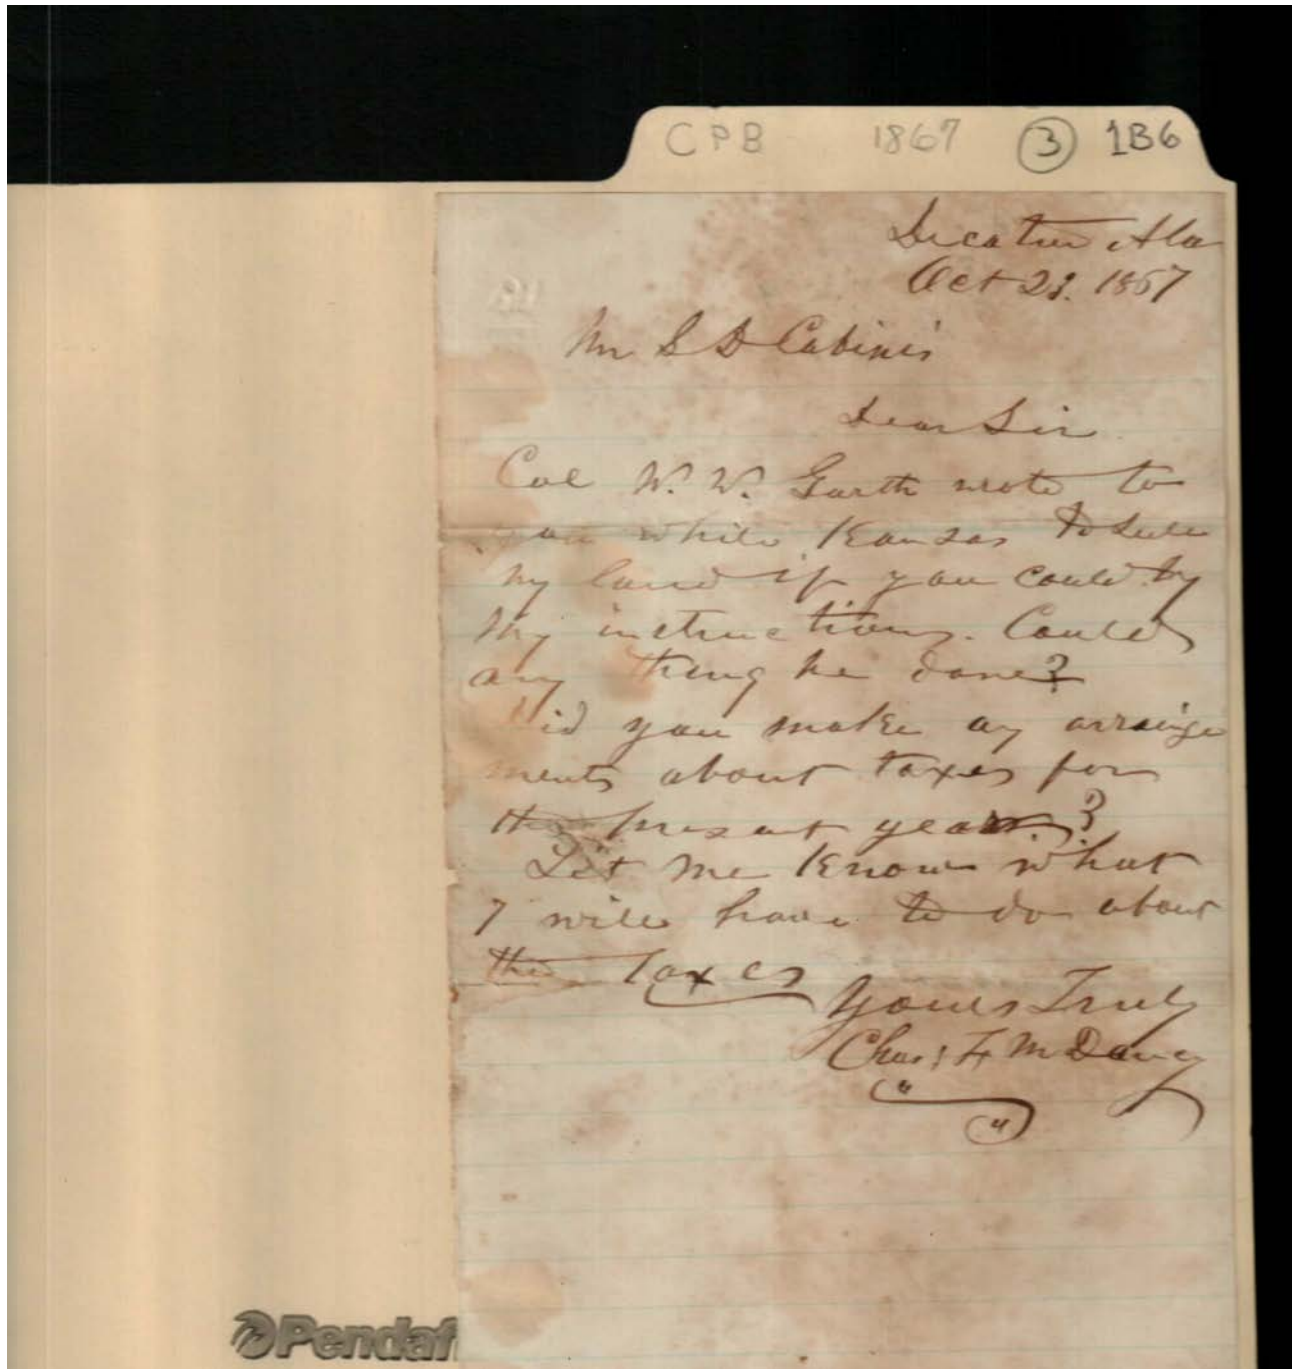 CPB 1867 3 1B6
Decatur Ala
Oct 23. 1867
Mr S D Cabinis
Dear Sir
Col W. W. Garth wrote to
you while Kansas to sell
my land if you could by
my instructions. Could
any thing be done?
Did you make any arrainge
ments about taxes for
the present year?
Let me know what
I will have to do about
the taxes
Yours Truly
Chas F M Dancy
Pendaf